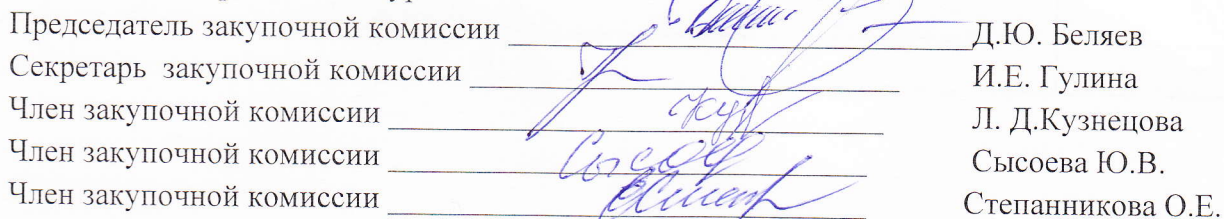 Председатель закупочной комиссии Д.Ю. Беляев
Секретарь закупочной комиссии И.Е. Гулина
Член закупочной комиссии Л. Д.Кузнецова
Член закупочной комиссии Сысоева Ю.В.
Член закупочной комиссии Степанникова О.Е.